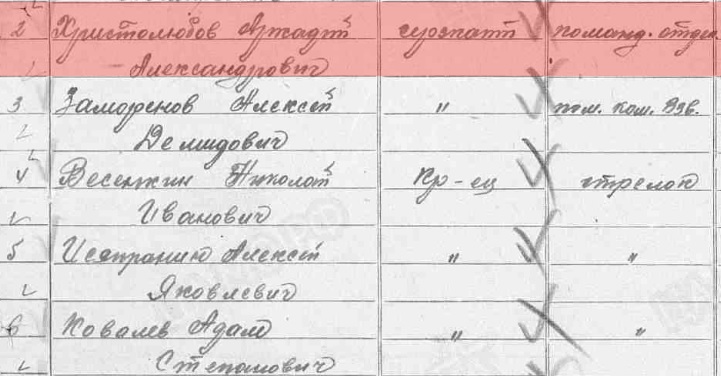 2 Христолюбов Аркадий сержант команд. отдел.
Александрович
3 Заморенов Алексей " пом. ком. взв.
Демидович
4 Весенкин Николай Кр-ец стрелок
Иванович
5 Алексей " "
Яковлевич
6 Ковалев Адам " "
Степанович